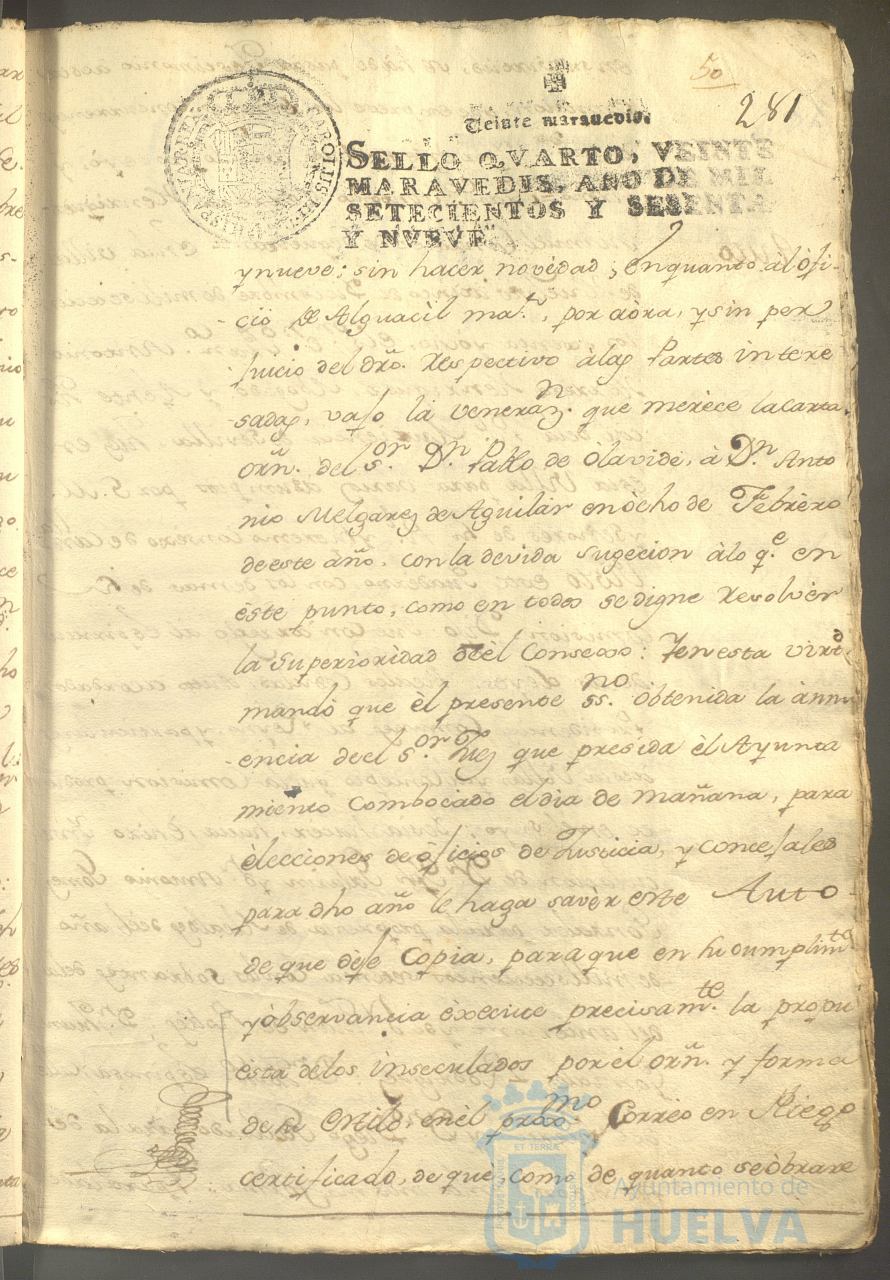 50
281
Veinte marauedis.
SELLO QVARTO, VEINTE
MARAVEDIS, AÑO DE MIL
SETECIENTOS Y SESENTA
Y NVEVE.
HISPANIAR REX CAROLUS III
y nueve; sin hacer novedad, enquanto àl òfi-
cio de Alguacìl maʳ, por aòra, y sin per
juicio del dr̃o. Respectivo àlas Partes intere
sadas, vajo là veneraⁿ. que merece la carta
orñ. del sᵒʳ Dⁿ. Pablo de Olavide, à Dⁿ Anto
nio Melgarejo de Aguilàr en òcho de Febrèro
de este año, con la devida sugecion àlo qᵉ en
èste punto, como en todos se digne Resolvèr
la Superioridad deèl Consexo: Y en esta virtᵈ
mandò que èl presente ssⁿᵒ. Obtenida la ànnu
encia de el sᵒʳ Juez que presida èl Ayunta
miento Combocado el dia de mañana, para
èlecciones de òficios de Justicia, y concejales
para dho año le haga savèr este Auto
de que deje Copia, para que en su cumplimᵗᵒ
y òbservancia èxecute precisamᵗᵉ. la propu
esta delos inseculados por èl orñ. y forma
de su estilo en èl proxᵐᵒ Corrèo en Pliego
certificado, de què, como de quanto se òbrare
Ayuntamiento de
HUELVA